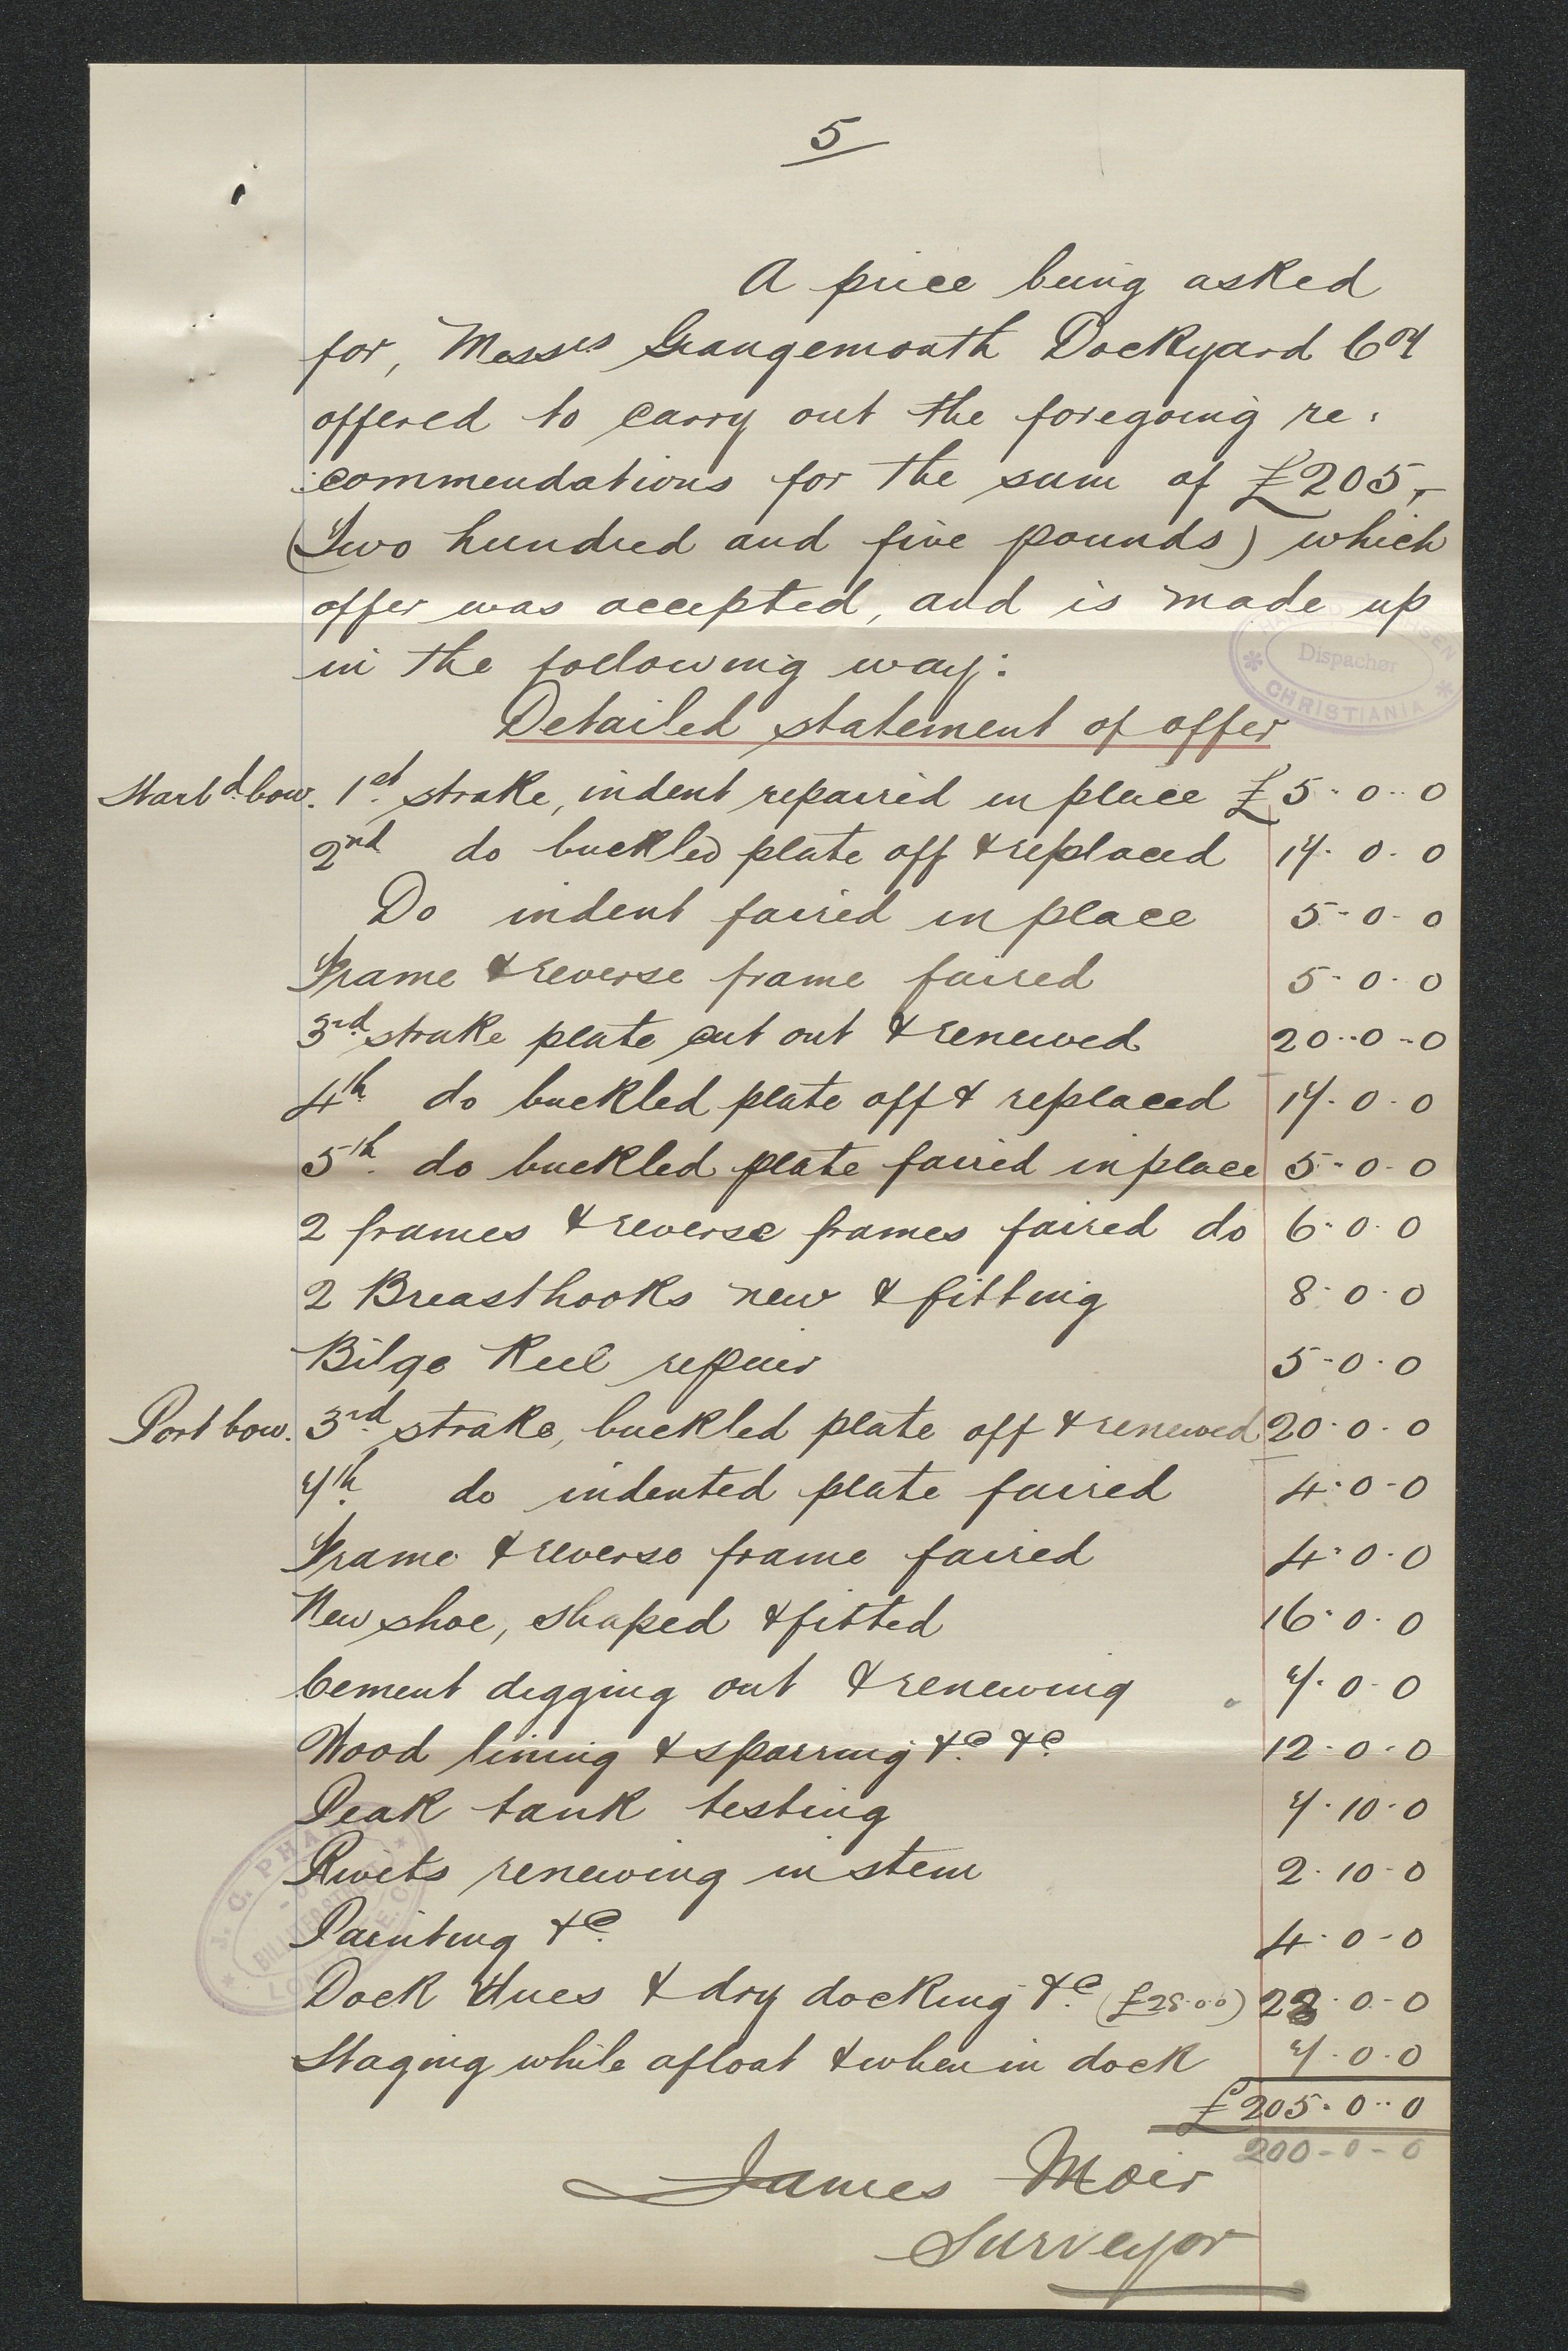 5
A price being asked
for, Messrs Grangemouth Dockyard Coy
offered to carry out the foregoing re:
:commendations for the sum of £205,-
(Two hundred and five pounds) which
offer was accepted, and is made up
in the following way:
Dispachør
CHRISTIANIA
Detailed statement of offer
Starbd bow. 1st strake, indent repaired in place £5-0-0
2nd do buckled plate off & replaced 17-0-0
Do indent faired in place 5-0-0
Frame & reverse frame faired 5-0-0
3rd strake plate cut out & renewed 20-0-0
4th do buckled plate off & replaced 17-0-0
5th do buckled plate faired in place 5-0-0
2 frames & reverse frames faired do 6-0-0
2 Breasthooks new & fitting 8-0-0
Bilge Keel repair 5-0-0
Port bow. 3rd strake, buckled plate off & renewed 20-0-0
7th do indented plate faired 4-0-0
Frame & reverse frame faired 4-0-0
New shoe, shaped & fitted 16-0-0
Cement digging out & renewing 7-0-0
Wood lining & sparring &c &c 12-0-0
Peak tank testing 7-10-0
Rivets renewing in stem 2-10-0
Painting &c 4-0-0
Dock dues & dry docking &c (£28-0-0) 28-0-0
Staging while afloat & when in dock 7-0-0
£205-0-0
200-0-0
James Moir
Surveyor